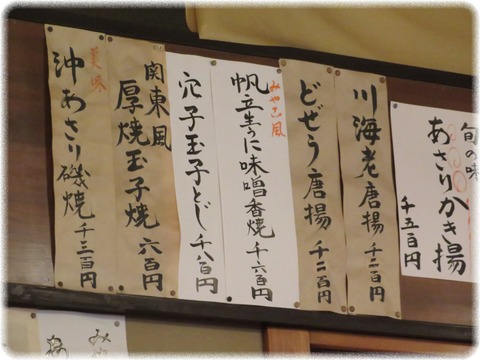 旬の味
あさりかき揚
千五百円
川海老唐揚
千二百円
どぜう唐揚
千二百円
みやこ風
帆立生うに味噌香焼
千六百円
穴子玉子とじ
千八百円
関東風
厚焼玉子焼
六百円
美味
沖あさり磯焼
千三百円
みや